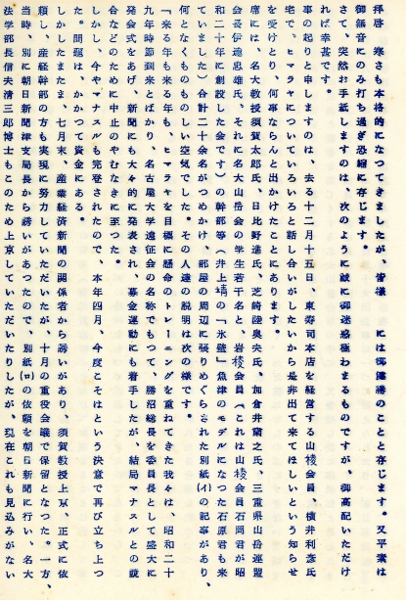 拝啓　寒さも本格的になつてきましたが、皆様　　には御健勝のことと存じます。又平素は
御無音にのみ打ち過ぎ恐縮に存じます。
さて、突然お手紙しますのは、次のように誠に御迷惑極わまるものですが、御高配いただけ
れば幸甚です。
事の起りと申しますのは、去る十二月十五日、東寿司本店を経営する山稜会員、横井利彦氏
宅で、ヒマラヤについていろいろと話し合いがしたいから是非出て来てほしいという知らせ
を受けとり、何事ならんと出かけたことにあります。
席には、名大教授須賀太郎氏、日比野進氏、芝崎陸奥夫氏、加倉井蘭之氏、三重県山岳連盟
会長伊達忠雄氏、それに名大山岳会の学生若干名と、岩稜会員（これは山稜会員石岡君が昭
和二十年に創設した会です）の幹部等（井上靖の「氷壁」魚津のモデルになつた石原君も来
ていました）合計二十余名がつめかけ、部屋の周辺に張りめぐらされた別紙(イ)の記事があり、
何となくものものしい空気でした。その人達の説明は次の様です。
「来る年も来る年も、ヒマラヤを目標に懸命のトレーニングを重ねてきた我々は、昭和二十
九年時節到来とばかり、名古屋大学遠征会の名称でもつて、勝沼総長を委員長として盛大に
発会式をあげ、新聞にも大々的に発表され、募金運動にも着手したが、結局マナスルとの競
合などのために中止のやむなきに至つた。
しかし、今やマナスルも完登されたので、本年四月、今度こそはという決意で再び立ち上つ
た。問題は、かかつて資金にある。
しかしたまたま、七月末、産業経済新聞の関係者から誘いがあり、須賀教授上京、正式に依
頼し、産経幹部の方も実現に努力していただいたが、十月の重役会議で保留となつた。一方、
当時、朝日新聞津支局長から誘いがあつたので、別紙(ロ)の依頼を朝日新聞に行い、名大
法学部長信夫清三郎博士もこのため上京していただいたりしたが、現在これも見込みがない